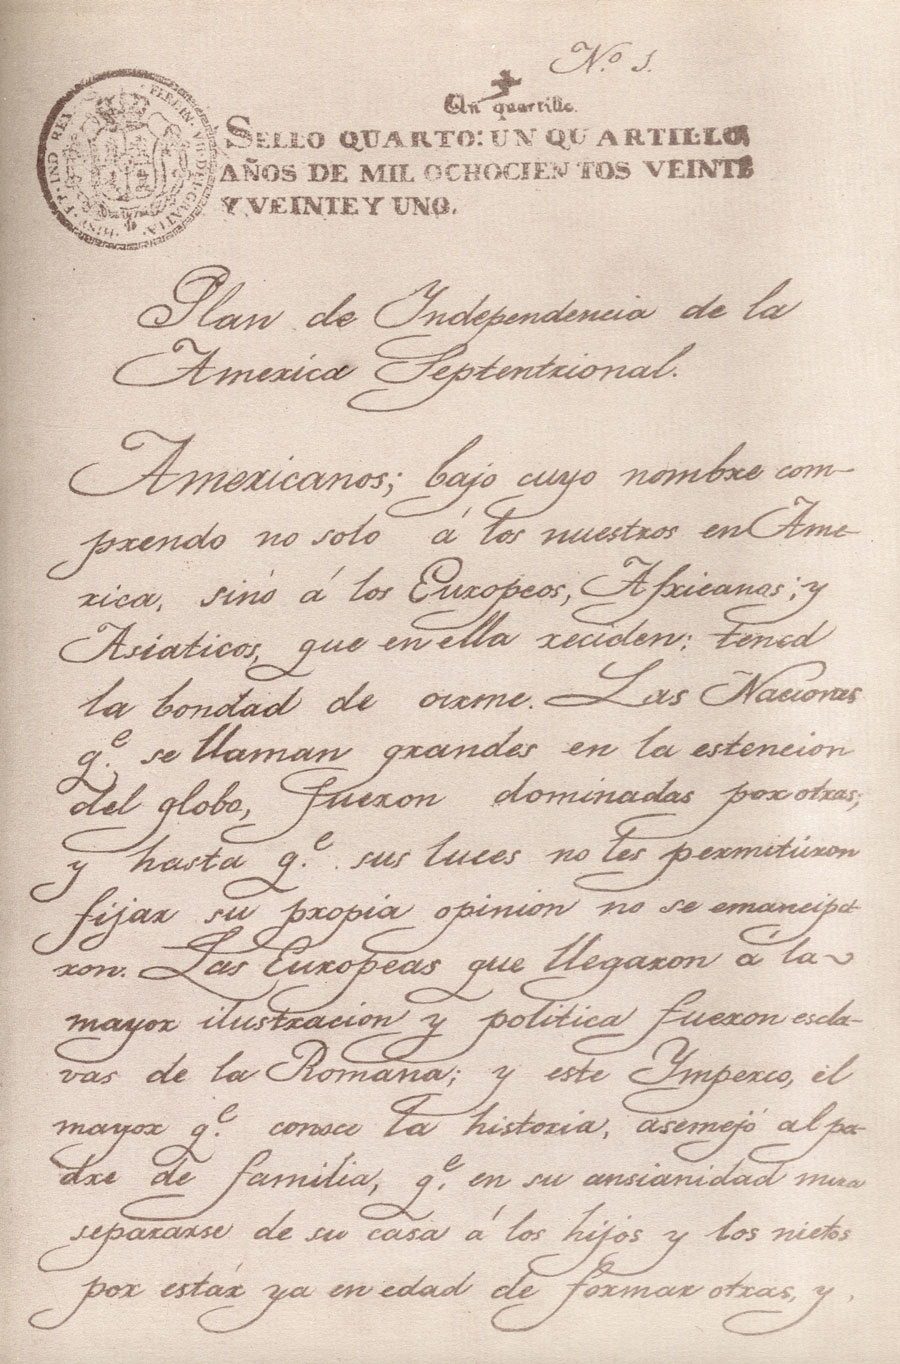 Nº 1.
Un quartillo.
SELLO QUARTO: UN QUARTILLO,
AÑOS DE MIL OCHOCIENTOS VEINTE
Y VEINTE Y UNO.
FERDIN · VII · DEI · GRATIA
HISP · ET · IND REX
Plan de Independencia de la
America Septentrional.
Americanos; bajo cuyo nombre com-
prendo no solo á los nuestros en Ame-
rica, sinó á los Europeos, Africanos; y
Asiaticos, que en ella reciden: tened
la bondad de oirme. Las Naciones
q.e se llaman grandes en la estencion
del globo, fueron dominadas por otras;
y hasta q.e sus luces no les permitieron
fijar su propia opinion no se emancipa-
ron. Las Europeas que llegaron á la
mayor ilustracion y politica fueron escla-
vas de la Romana; y este Imperco, el
mayor q.e conoce la historia, asemejó al pa-
dre de familia, q.e en su ansianidad mira
separarse de su casa á los hijos y los nietos
por estár ya en edad de formar otras, y